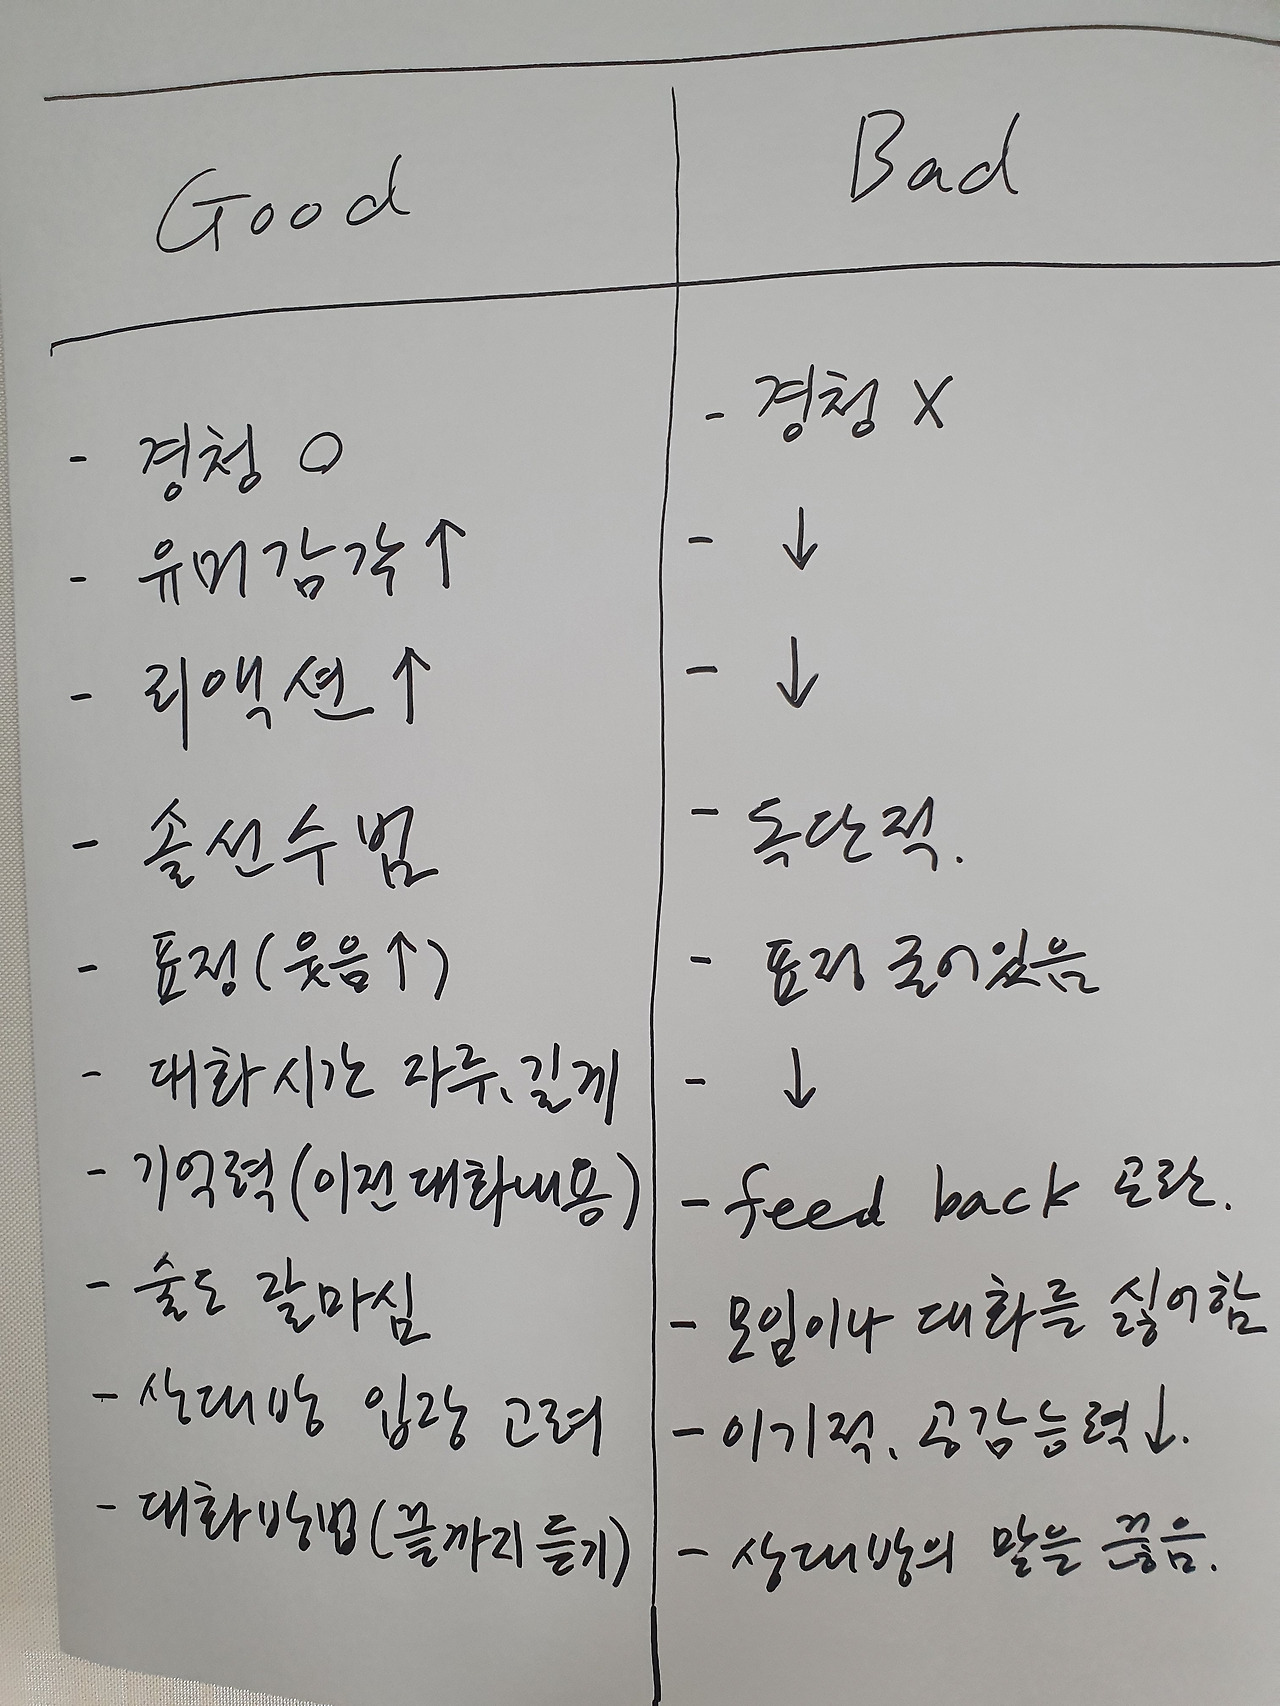 Good
Bad
- 경청 O
- 유머감각 ↑
- 리액션 ↑
- 솔선수범
- 표정(웃음↑)
- 대화시간 자주, 길게
- 기억력(이전대화내용)
- 술도 잘마심
- 상대방 입장 고려
- 대화방법(끝까지 듣기)
- 경청 X
- ↓
- ↓
- 독단적.
- 표정 굳어있음
- ↓
- feed back 곤란.
- 모임이나 대화를 싫어함
- 이기적, 공감능력↓.
- 상대방의 말을 끊음.